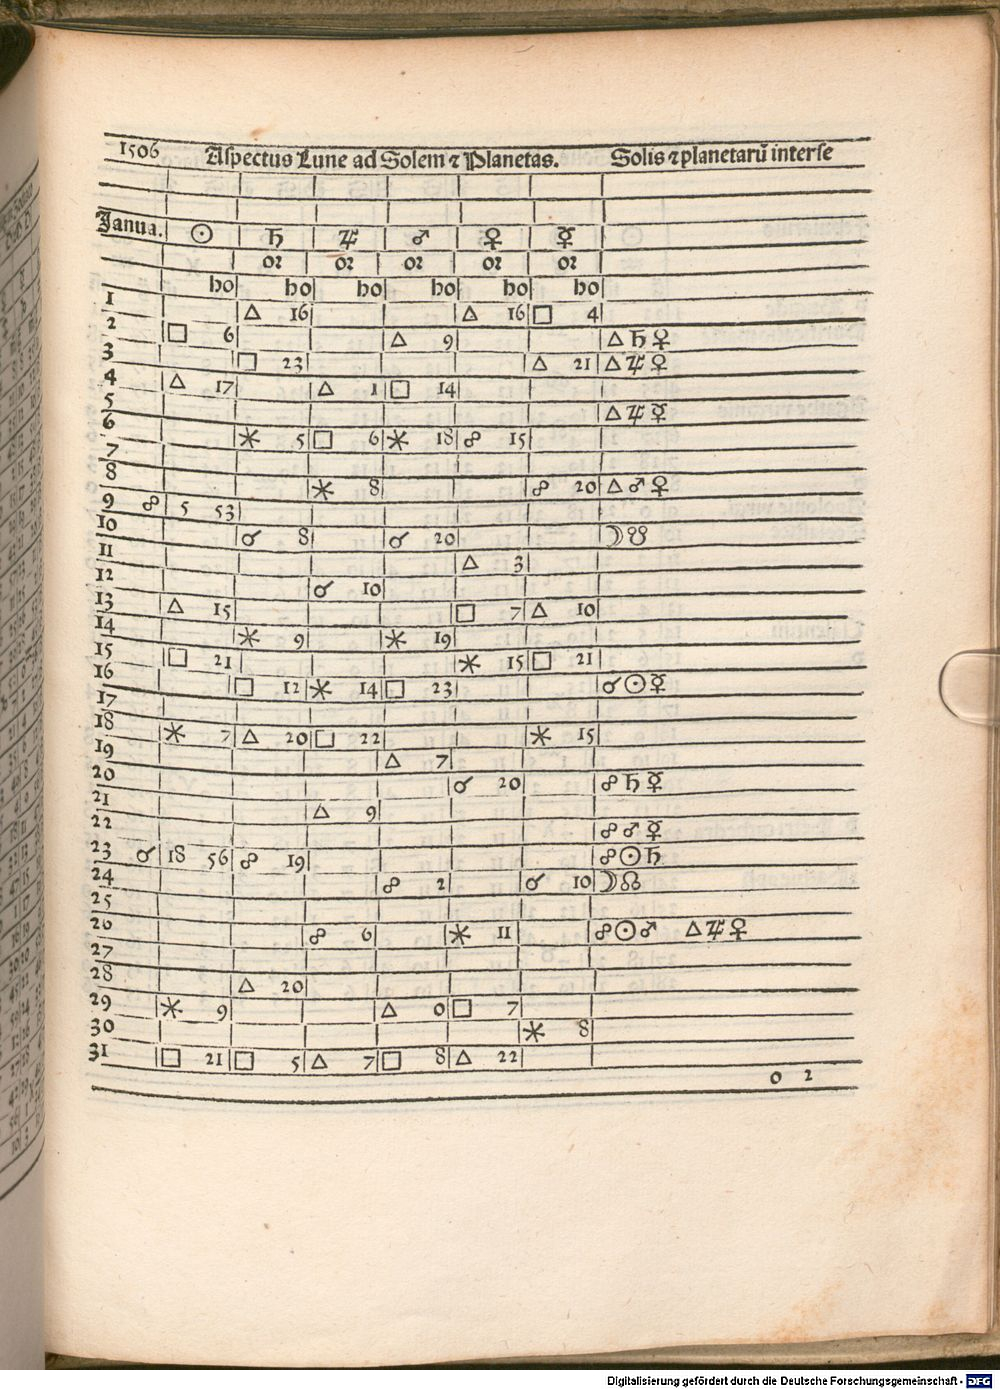 1506 Aspectus Lune ad Solem ⁊ Planetas. Solis ⁊ planetarū inter se
Janua. ☉ ♄ ♃ ♂ ♀ ☿
oꝛ oꝛ oꝛ oꝛ oꝛ
ho ho ho ho ho ho
1 △ 16 △ 16 □ 4
2 □ 6 △ 9 △ ♄ ♀
3 □ 23 △ 21 △ ♃ ♀
4 △ 17 △ 1 □ 14
5 △ ♃ ☿
6 ⚹ 5 □ 6 ⚹ 18 ☍ 15
7
8 ⚹ 8 ☍ 20 △ ♂ ♀
9 ☍ 5 53
10 ☌ 8 ☌ 20 ☽ ☋
11 △ 3
12 ☌ 10
13 △ 15 □ 7 △ 10
14 ⚹ 9 ⚹ 19
15 □ 21 ⚹ 15 □ 21
16 □ 12 ⚹ 14 □ 23 ☌ ☉ ☿
17
18 ⚹ 7 △ 20 □ 22 ⚹ 15
19 △ 7
20 ☌ 20 ☍ ♄ ☿
21 △ 9
22 ☍ ♂ ☿
23 ☌ 18 56 ☍ 19 ☍ ☉ ♄
24 ☍ 2 ☌ 10 ☽ ☊
25
26 ☍ 6 ⚹ 11 ☍ ☉ ♂ △ ♃ ♀
27
28 △ 20
29 ⚹ 9 △ 0 □ 7
30 ⚹ 8
31 □ 21 □ 5 △ 7 □ 8 △ 22
o 2
Digitalisierung gefördert durch die Deutsche Forschungsgemeinschaft - DFG